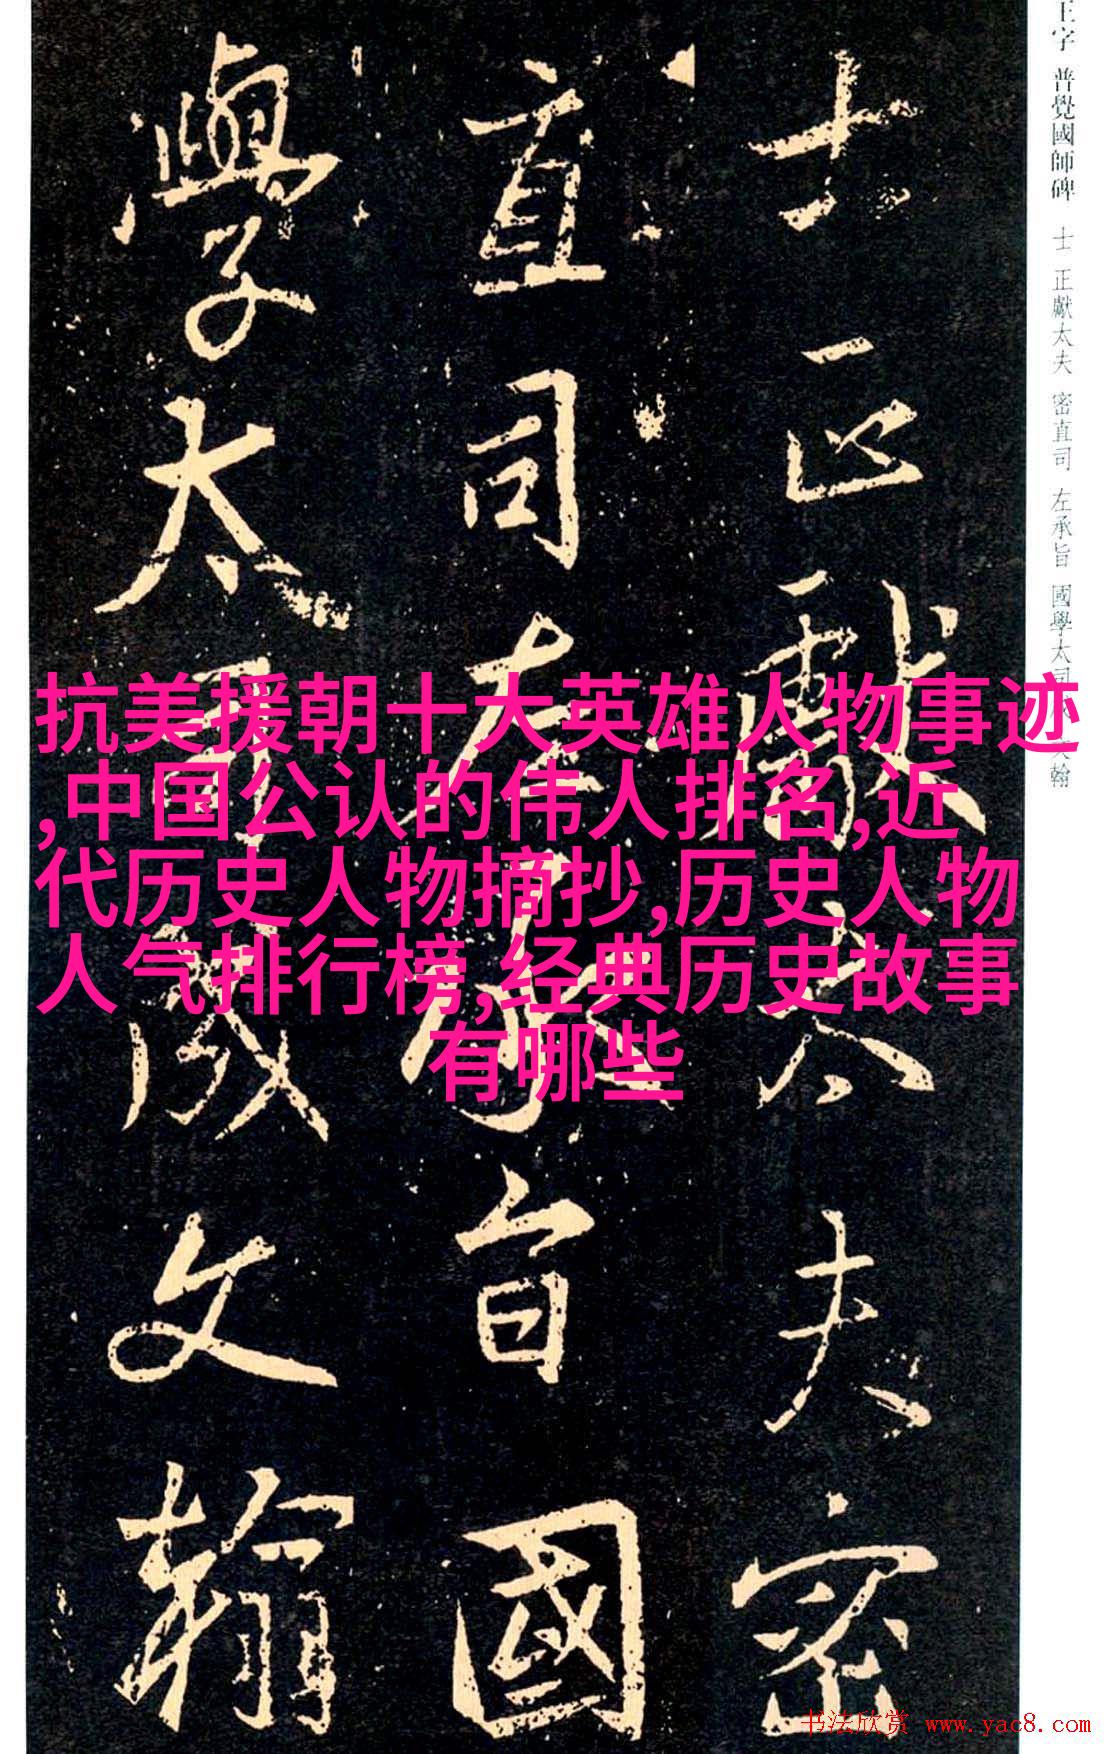 王字 普覺國師碑 士 正獻太夫 密直司 左承旨 國學太司 文翰
士正獻太夫密
直司左承旨國
學太司成文翰
抗美援朝十大英雄人物事迹
,中国公认的伟人排名,近
代历史人物摘抄,历史人物
人气排行榜,经典历史故事
有哪些
书法欣赏 www.yac8.com